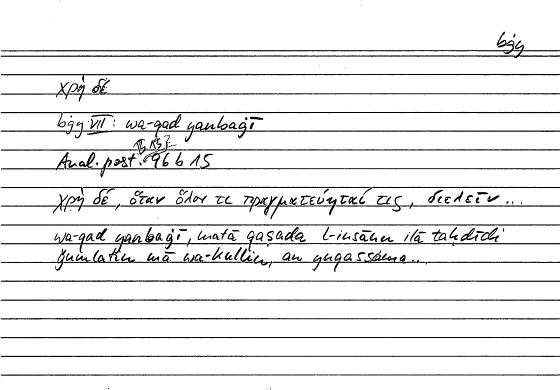 bġy
χρὴ δέ
bġy VII: wa-qad yanbaġī
Anal. post. 96 b 15
χρὴ δέ, ὅταν ὅλον τι πραγματεύηταί τις, διελεῖν ...
wa-qad yanbaġī, matā qaṣada l-insānu ilā taḥdīdi
ǧumlatin mā wa-kullin, an yuqassima...